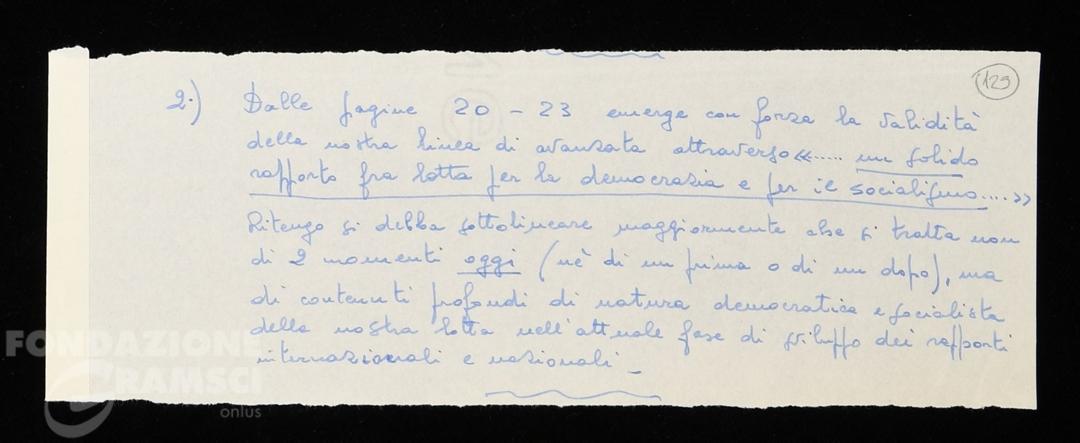 129
2.) Dalle pagine 20 - 23 emerge con forza la validità
della nostra linea di avanzata attraverso «..... un solido
rapporto fra lotta per la democrazia e per il socialismo....»
Ritengo si debba sottolineare maggiormente che si tratta non
di 2 momenti oggi (nè di un prima o di un dopo), ma
di contenuti profondi di natura democratica e socialista
della nostra lotta nell'attuale fase di sviluppo dei rapporti
internazionali e nazionali _
FONDAZIONE
GRAMSCI
onlus